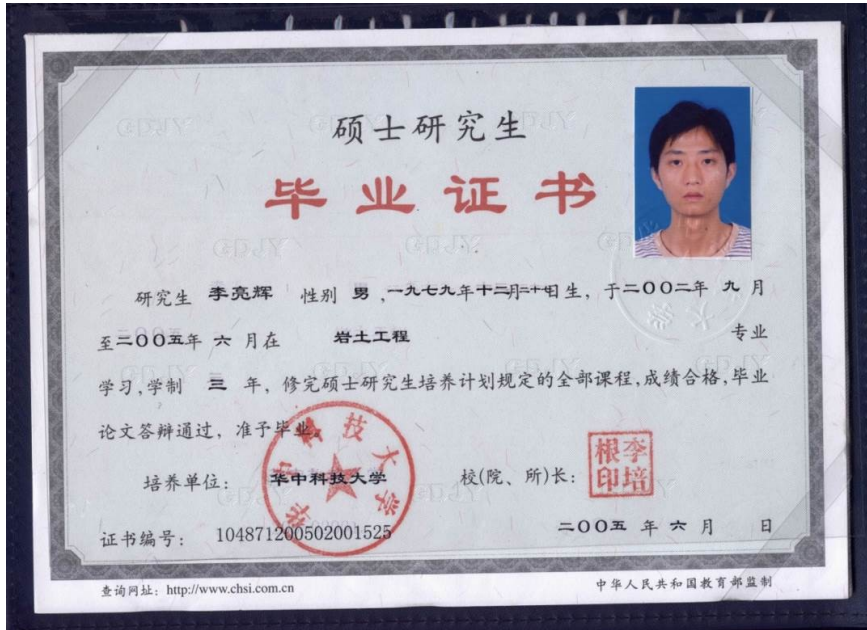 硕士研究生
毕业证书
研究生 李亮辉 性别 男 ,一九七九年十二月二十七日生，于二〇〇二年 九 月
至二〇〇五年 六 月在 岩土工程 专业
学习,学制 三 年，修完硕士研究生培养计划规定的全部课程,成绩合格,毕业
论文答辩通过，准予毕业。
培养单位：华中科技大学 校(院、所)长：李培根印
证书编号：104871200502001525 二〇〇五 年 六 月 日
查询网址：http://www.chsi.com.cn 中华人民共和国教育部监制